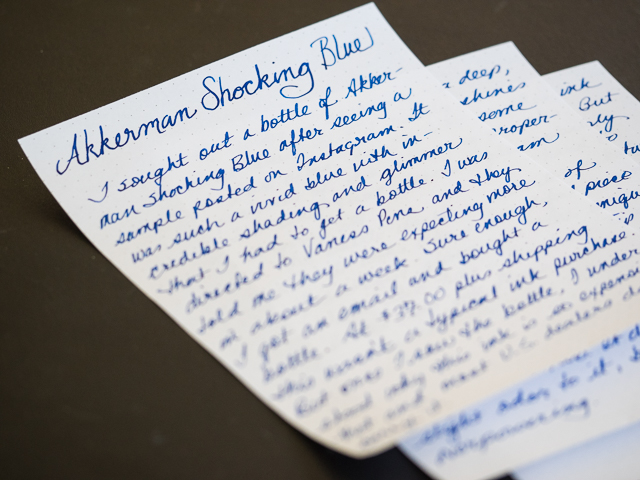 Akkerman Shocking Blue
I sought out a bottle of Akker-
man Shocking Blue after seeing a
sample posted on Instagram. It
was such a vivid blue with in-
credible shading and glimmer
that I had to get a bottle. I was
directed to Vaness Pens, and they
told me they were expecting more
in about a week. Sure enough,
I got an email and bought a
bottle. At $37.00 plus shipping
this wasn't a typical ink purchase.
But once I saw the bottle, I under
about why this ink is so expens
but and most U.S. dealers
deep,
shines
some
roper-
am
ink
But
ily
of
piece
niqu
slight odor to it,